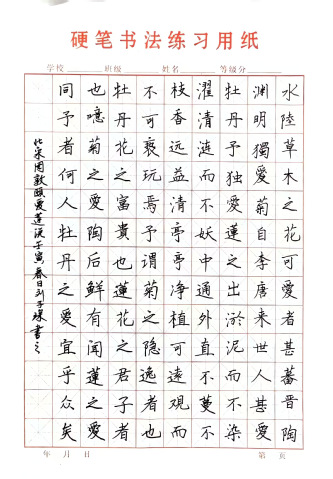 硬笔书法练习用纸
学校 班级 姓名 等级分
水陸草木之花可愛者甚蕃晋陶
渊明獨愛菊自李唐來世人甚愛
牡丹予独愛蓮之出淤泥而不染
濯清涟而不妖中通外直不蔓不
枝香远益清亭亭净植可遠觀而
不可亵玩焉予謂菊之隐逸者也
牡丹花之富貴也蓮花之君子者
也噫菊之愛陶后鲜有闻蓮之愛
同予者何人牡丹之愛宜乎众矣
北宋周敦颐愛莲说壬寅春日刘子琛書之
年 月 日 第 页